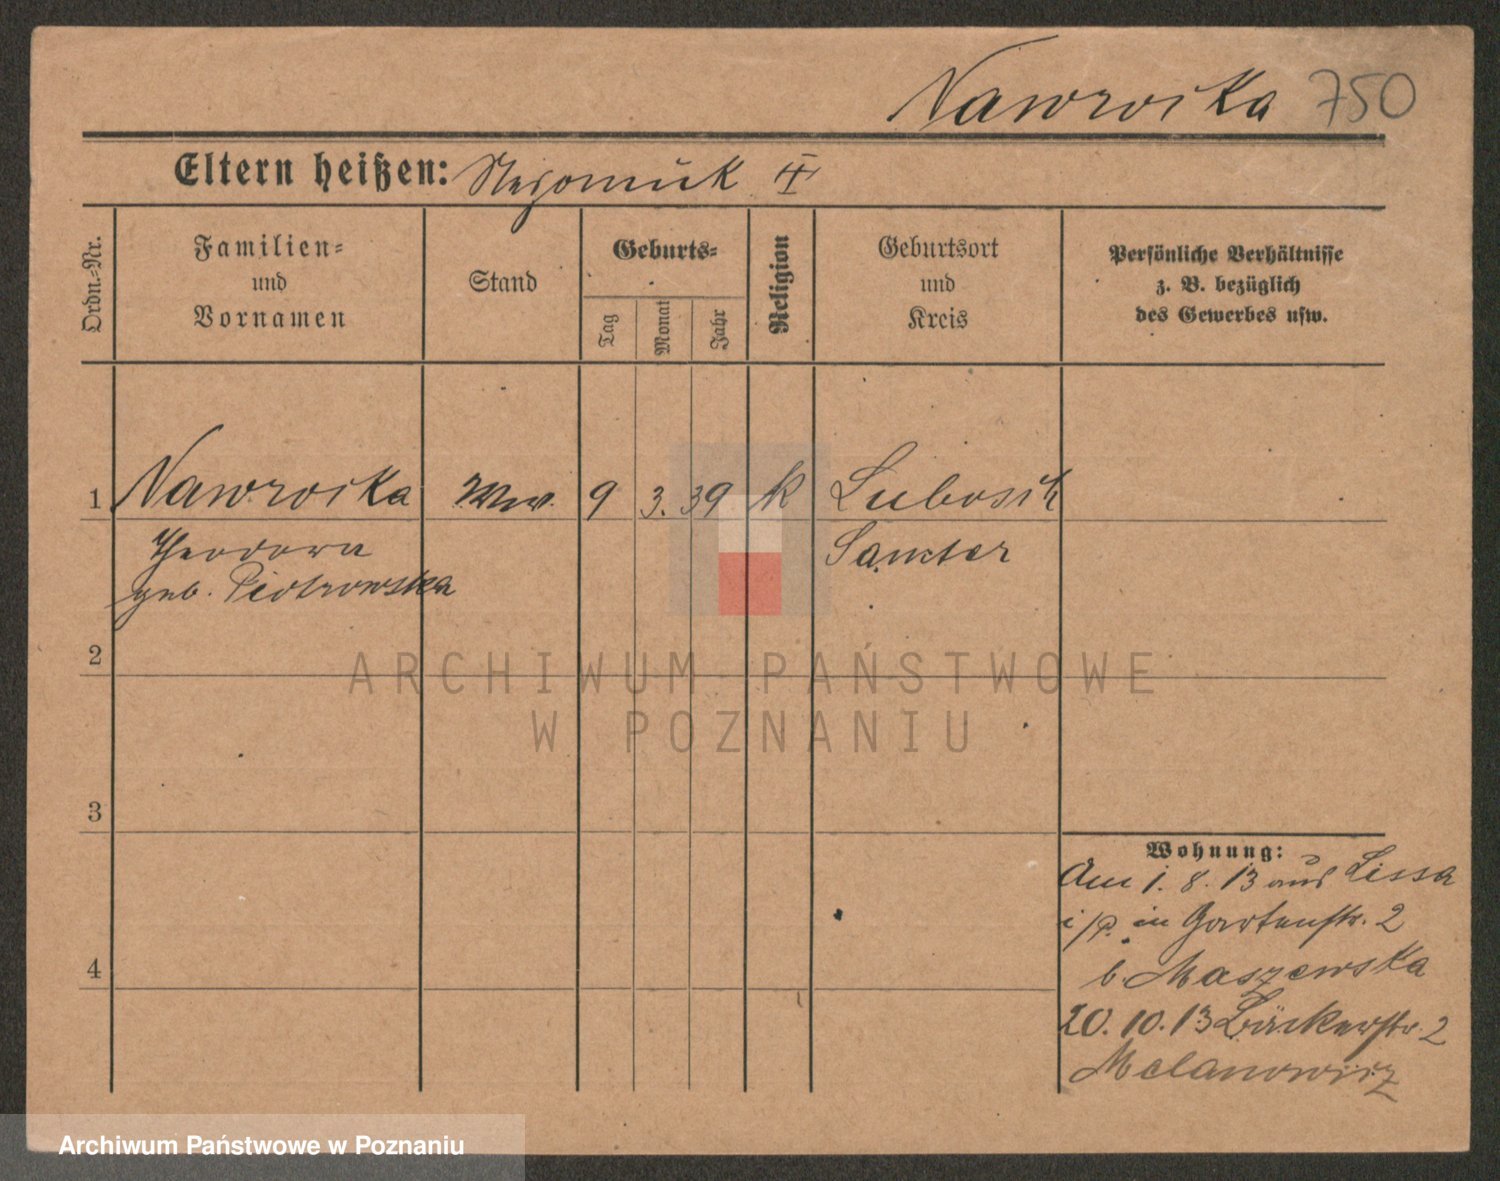 Nawrocka 750
Eltern heißen: Nepomuk II
Ordn.-Nr.
Familien-
und
Vornamen
Stand
Geburts-
Tag
Monat
Jahr
Religion
Geburtsort
und
Kreis
Persönliche Verhältnisse
z. B. bezüglich
des Gewerbes usw.
1 Nawrocka Wwe. 9 3. 39 k Lubosch
Theodora Samter
geb. Piotrowska
2
ARCHIWUM PAŃSTWOWE
W POZNANIU
3
Wohnung:
Am 1. 8. 13 aus Lissa
i/P. in Gartenstr. 2
4
b. Maszewska
20. 10. 13 Bäckerstr. 2
Melanowicz
Archiwum Państwowe w Poznaniu